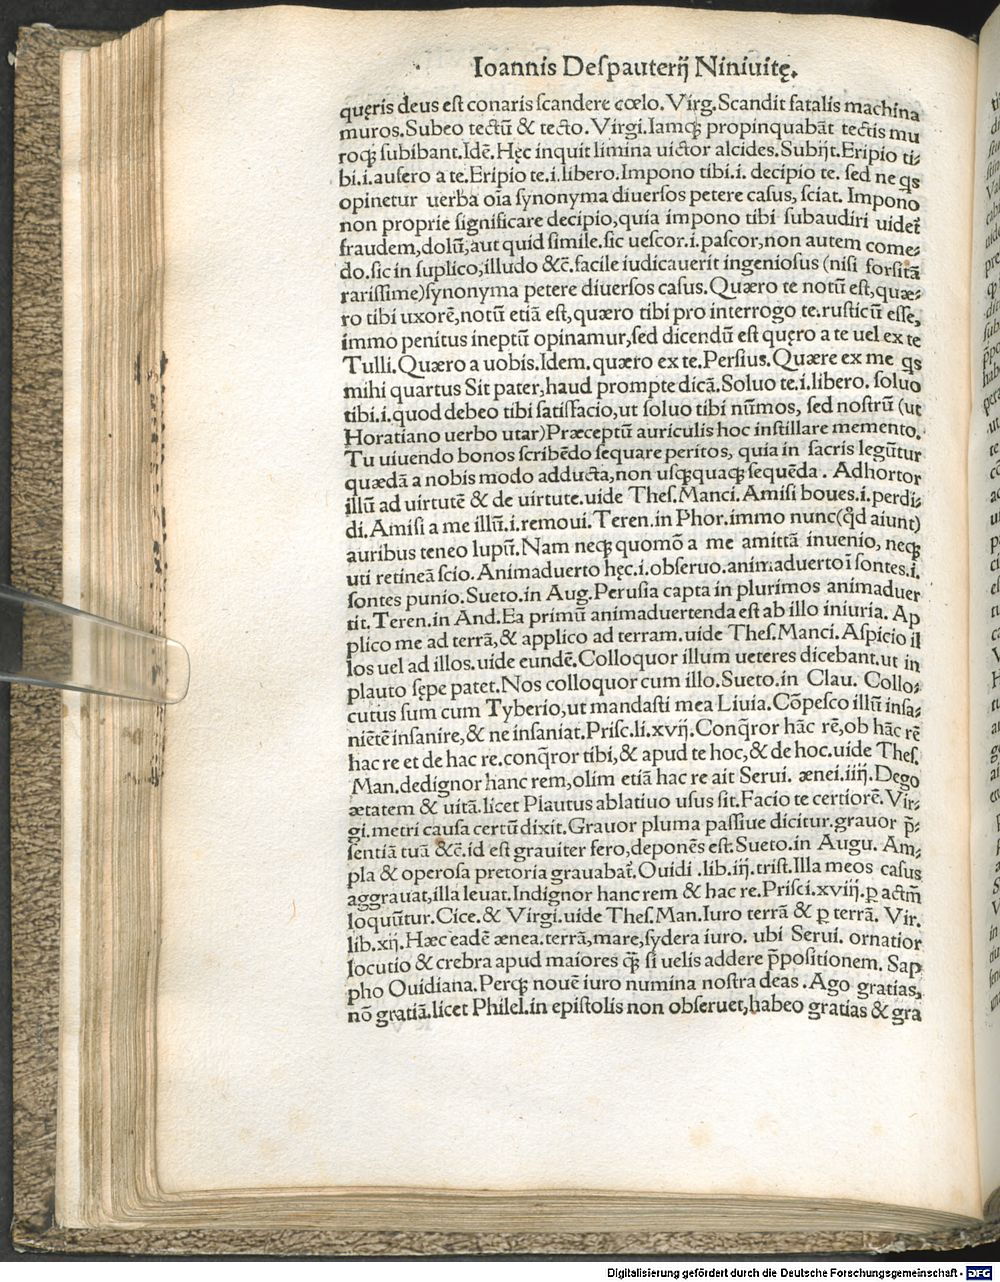 Ioannis Deſpauterij Niniuitę.
quęris deus eſt conaris ſcandere cœlo. Virg. Scandit fatalis machina
muros. Subeo tectū & tecto. Virgi. Iamqꝫ propinquabāt tectis mu
roqꝫ ſubibant. Idē. Hęc inquit limina uictor alcides. Subijt. Eripio ti⸗
bi.i. aufero a te. Eripio te.i. libero. Impono tibi.i. decipio te. ſed ne qs
opinetur uerba oīa ſynonyma diuerſos petere caſus, ſciat. Impono
non proprie ſignificare decipio, quia impono tibi ſubaudiri uidet̄
fraudem, dolū, aut quid ſimile. ſic ueſcor.i. paſcor, non autem come⸗
do. ſic in ſuplico, illudo &c̄. facile iudicauerit ingenioſus (niſi forſitā
rariſſime) ſynonyma petere diuerſos caſus. Quæro te notū eſt, quæ⸗
ro tibi uxorē, notū etiā eſt, quæro tibi pro interrogo te. ruſticū eſſe,
immo penitus ineptū opinamur, ſed dicendū eſt quęro a te uel ex te
Tulli. Quæro a uobis. Idem. quæro ex te. Perſius. Quære ex me qs
mihi quartus Sit pater, haud prompte dicā. Soluo te.i. libero. ſoluo
tibi.i. quod debeo tibi ſatiſfacio, ut ſoluo tibi nūmos, ſed noſtrū (ut
Horatiano uerbo utar) Præceptū auriculis hoc inſtillare memento.
Tu uiuendo bonos ſcribēdo ſequare peritos, quia in ſacris legūtur
quædā a nobis modo adducta, non uſqꝫquaqꝫ ſequēda. Adhortor
illū ad uirtutē & de uirtute. uide Theſ. Manci. Amiſi boues.i. perdi⸗
di. Amiſi a me illū.i. remoui. Teren. in Phor. immo nunc (qd̄ aiunt)
auribus teneo lupū. Nam neqꝫ quomō a me amittā inuenio, neqꝫ
uti retineā ſcio. Animaduerto hęc.i. obſeruo. animaduerto ī ſontes.i.
ſontes punio. Sueto. in Aug. Peruſia capta in plurimos animaduer
tit. Teren. in And. Ea primū animaduertenda eſt ab illo iniuria. Ap
plico me ad terrā, & applico ad terram. uide Theſ. Manci. Aſpicio il
los uel ad illos. uide eundē. Colloquor illum ueteres dicebant. ut in
plauto ſępe patet. Nos colloquor cum illo. Sueto. in Clau. Collo⸗
cutus ſum cum Tyberio, ut mandaſti mea Liuia. Cōpeſco illū inſa⸗
niētē inſanire, & ne inſaniat. Priſc. li. xvij. Conq̄ror hāc rē, ob hāc rē
hac re et de hac re. conq̄ror tibi, & apud te hoc, & de hoc. uide Theſ.
Man. dedignor hanc rem, olim etiā hac re ait Serui. ænei. iiij. Dego
ætatem & uitā. licet Plautus ablatiuo uſus ſit. Facio te certiorē. Vir⸗
gi. metri cauſa certū dixit. Grauor pluma paſſiue dicitur. grauor p̄⸗
ſentiā tuā &c̄. id eſt grauiter fero, deponēs eſt. Sueto. in Augu. Am⸗
pla & operoſa pretoria grauabat̄. Ouidi. lib. iij. triſt. Illa meos caſus
aggrauat, illa leuat. Indignor hanc rem & hac re. Priſci. xviij. ꝑ actm̄
loquūtur. Cice. & Virgi. uide Theſ. Man. Iuro terrā & ꝑ terrā. Vir.
lib. xij. Hæc eadē ænea. terrā, mare, ſydera iuro. ubi Serui. ornatior
locutio & crebra apud maiores q̄ꝫ ſi uelis addere p̄poſitionem. Sap
pho Ouidiana. Perqꝫ nouē iuro numina noſtra deas. Ago gratias,
nō gratiā. licet Philel. in epiſtolis non obſeruet, habeo gratias & gra
Digitalisierung gefördert durch die Deutsche Forschungsgemeinschaft - DFG